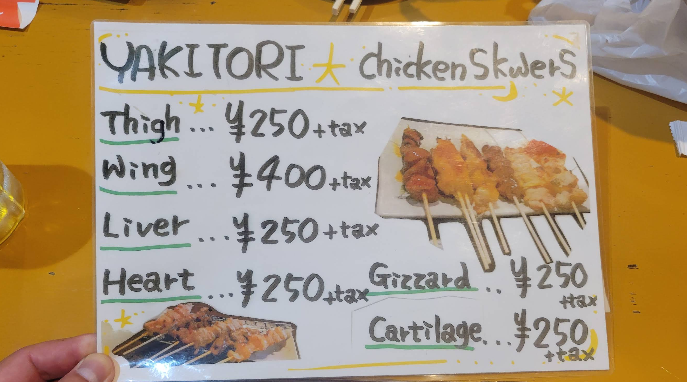 YAKITORI ☆ chicken SkwerS
Thigh ... ¥250+tax
Wing ... ¥400+tax
Liver ... ¥250+tax
Heart ... ¥250+tax
Gizzard .. ¥250
+tax
Cartilage... ¥250
+tax